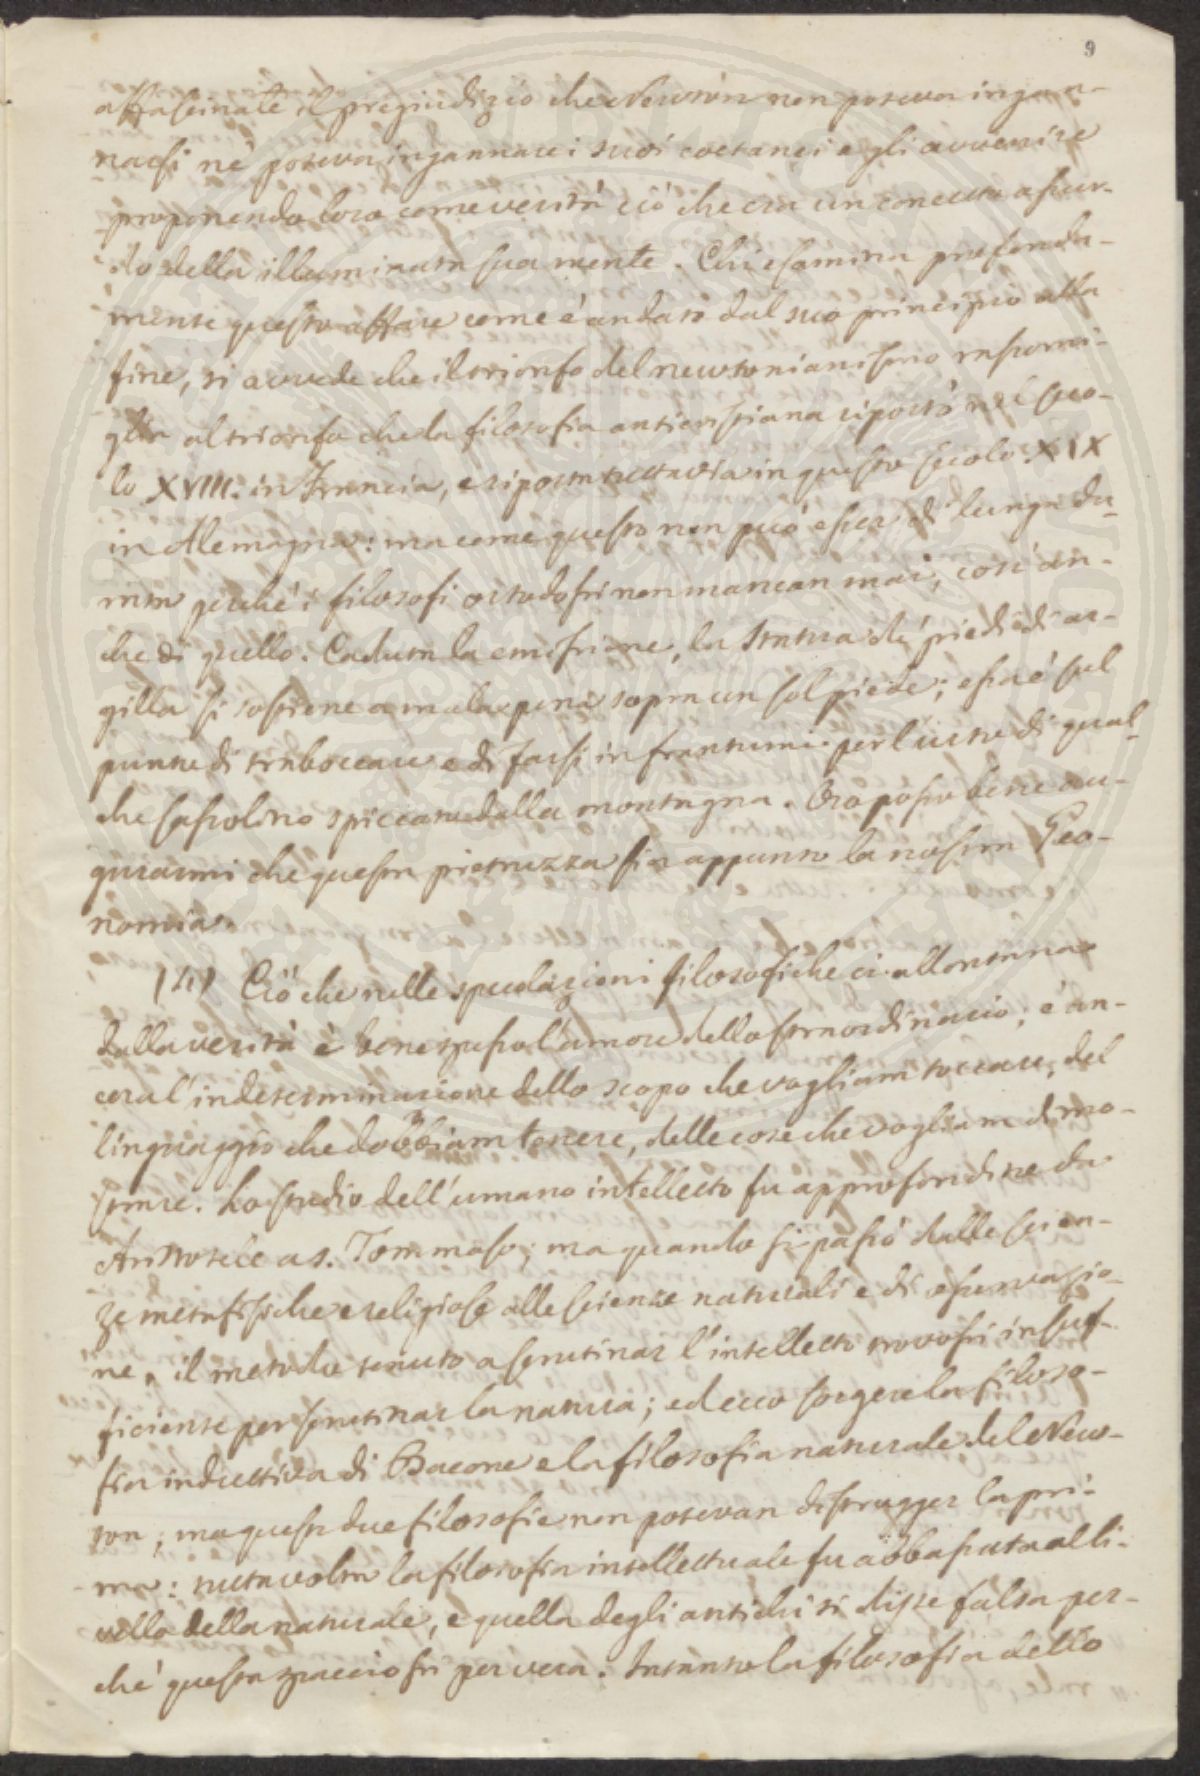 9
affascinate il pregiudizio che Newton non poteva ingan-
narsi nè poteva ingannare i suoi coetanei e gli avvenire
proponendo loro come verità ciò che era un concetto assur-
do della illuminata sua mente. Chi esamina profonda-
mente questo affare come è andato dal suo principio alla
fine, si avvede che il trionfo del newtonianismo rassomi-
glia al trionfo che la filosofia anticristiana riportò nel seco-
lo XVIII. in Francia, e riporta tuttavia in questo secolo XIX
in Alemagna: ma come questo non può esser di lunga du-
rata perché i filosofi ortodossi non mancan mai, così an-
che di quello. Caduta la emissione, la statua de' piedi di ar-
gilla si sostiene a mala pena sopra un sol piede; essa è sul
punto di traboccare e di farsi in frantumi per l'urto di qual-
che sassolino spiccato dalla montagna. Ora posso bene au-
gurarmi che questa pietruzza sia appunto la nostra Geo-
nomia.
(4) Ciò che nelle speculazioni filosofiche ci allontana
dalla verità è bene spesso l'amore dello straordinario; è an-
cora l'indeterminazione dello scopo che vogliam toccare, del
linguaggio che dobbiam tenere, delle cose che vogliam dimo-
strare. Lo studio dell'umano intelletto fu approfondito da
Aristotele a s. Tommaso; ma quando si passò dalle scien-
ze metafisiche e religiose alle scienze naturali e di osservazio-
ne, il metodo tenuto a scrutinar l'intelletto trovossi insuf-
ficiente per scrutinar la natura; ed ecco sorgere la filoso-
fia induttiva di Bacone e la filosofia naturale del New-
ton; ma queste due filosofie non potevan distrugger la pri-
ma: tuttavolta la filosofia intellettuale fu abbassata al li-
vello della naturale, e quella degli antichi si disse falsa per-
chè questa spacciossi per vera. Intanto la filosofia dello